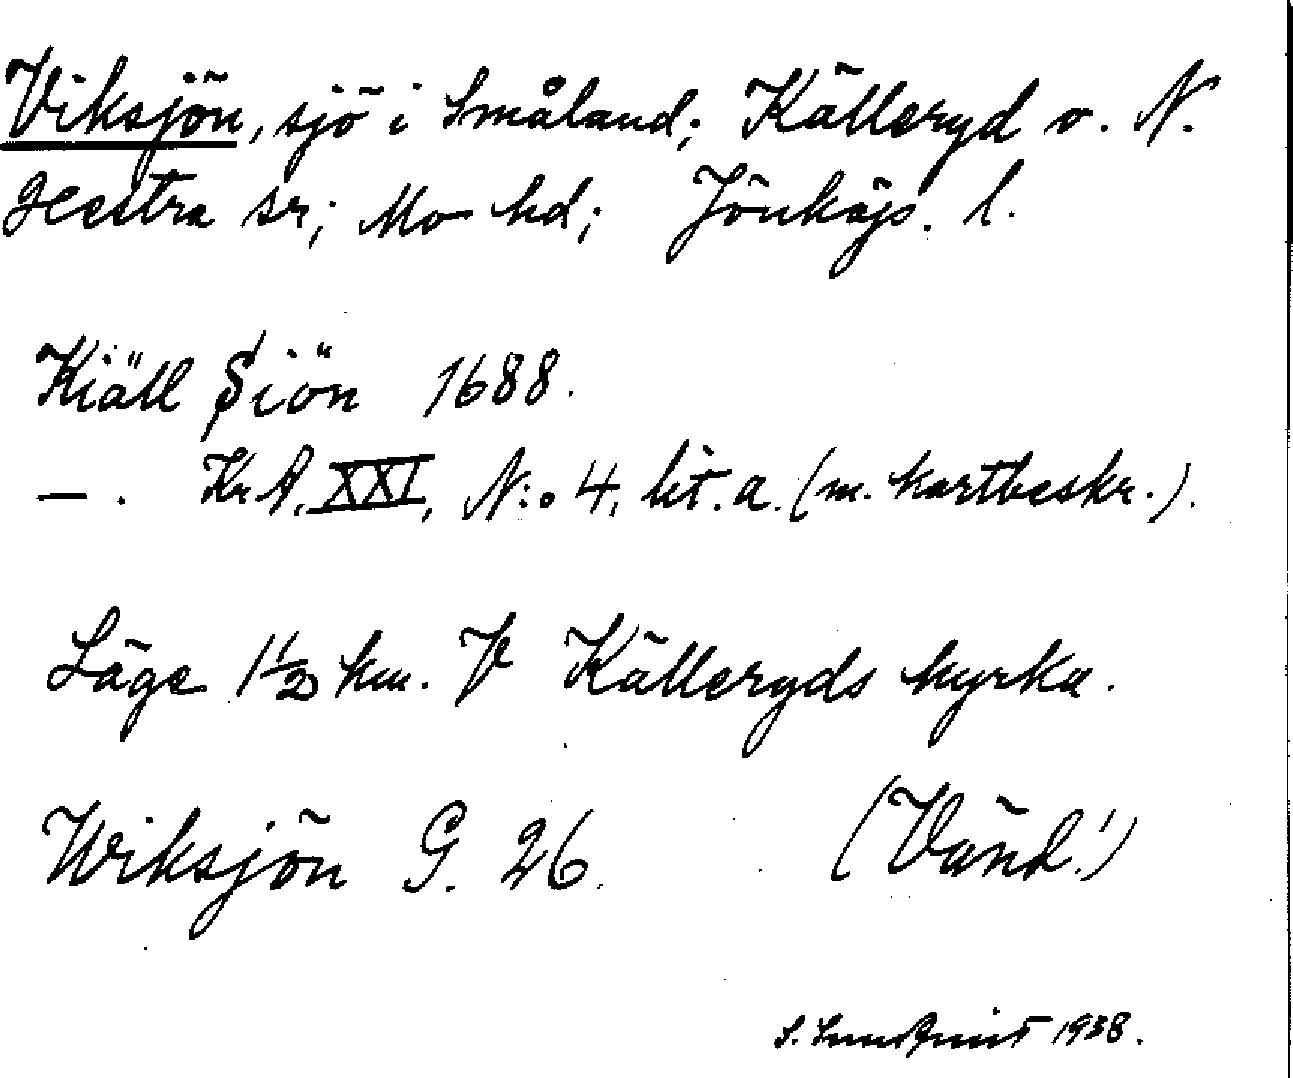 Viksjön, sjö i Småland; Källeryd o. N.
Hestra sn; Mo hd; Jönköps. l.
Kiäll Siön 1688.
— . Kr.A. XXI, N:o 4, lit. a. (m. kartbeskr.).
Läge 1 1/2 km. V Källeryds kyrka.
Wiksjön G. 26. (Vänd!)
S. Sundkvist 1938.